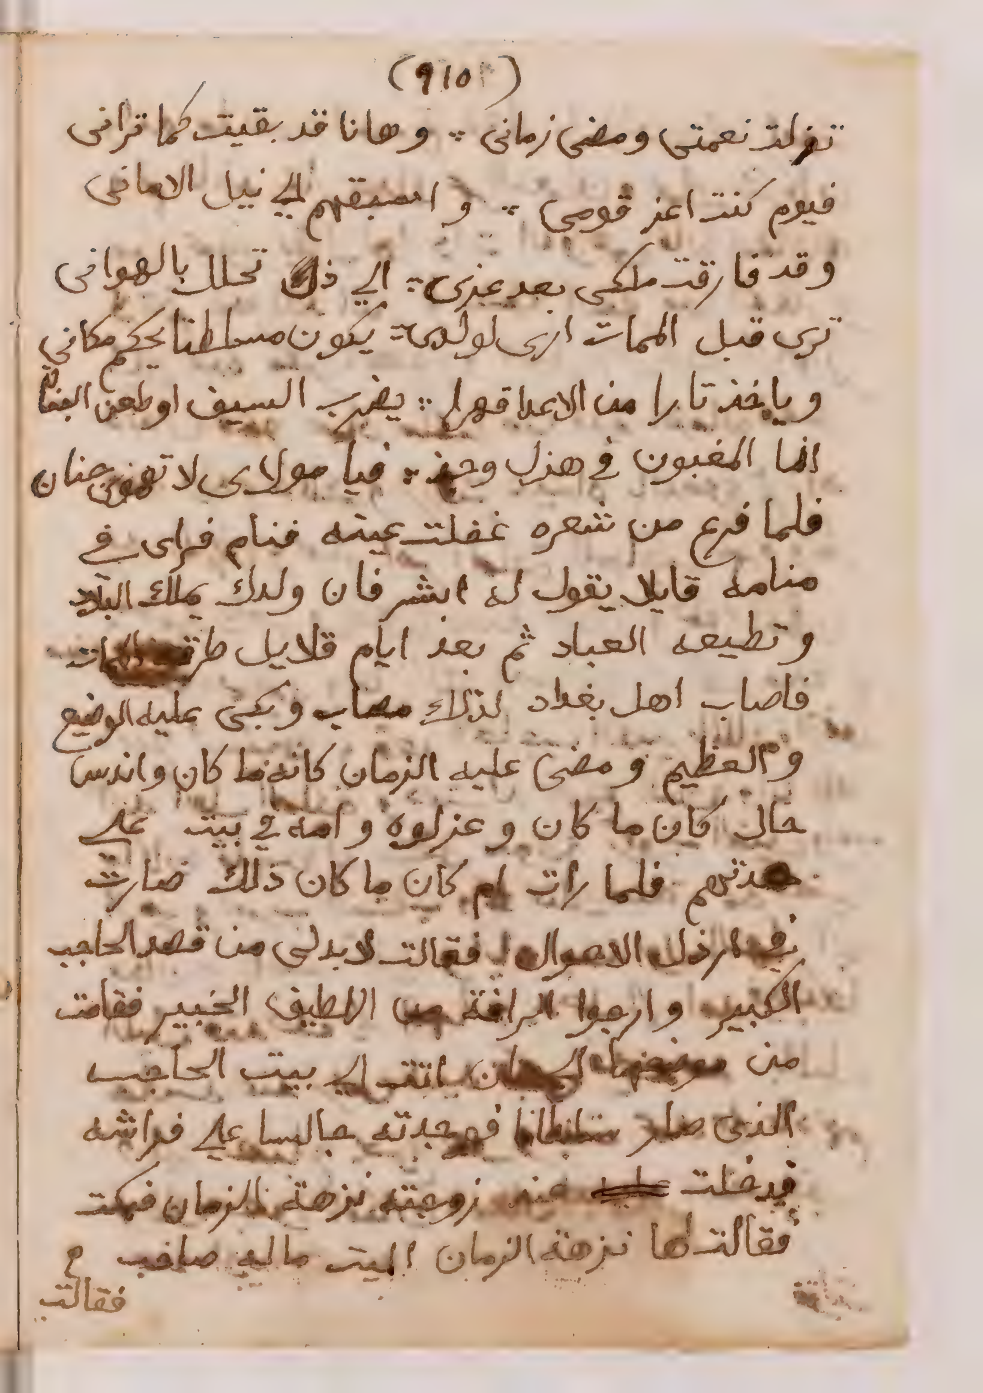 (٩١٥)
تغزلت نعمتى ومضى زمانى ⁖ وهانا قد بقيت كما ترانى
فيوم كنت اعز قومى ⁖ و اسبقهم الي نيل الامانى
وقد فارقت ملكى بعد عزى ⁖ الي ذل تحلل بالهوانى
ترى قبل الممات ارى لولدى ⁖ يكون مسلطنا يحكم مكاني
وياخذ تارا من الاعدا قهرا ⁖ يضرب السيف اوطعن
انا المغبون في هزل وجد ⁖ فيا مولاى لا جنان
فلما فرع من شعره غفلت عينه فنام فراى في
منامه قايلا يقول له ابشر فان ولدك يملك البلاد
وتطيعه العباد ثم بعد ايام قلايل طرقه الممات
فاصاب اهل بغداد لذلك مصاب وبكى عليه الوضيع
والعظيم ومضى عليه الزمان كانه ما كان واندس
حال كان ما كان وعزلوه وامه في بيت على
حدتهم فلما رات ام كان ما كان ذلك صارت
في ارذل الاحوال فقالت لابد لى من قصد الحاجب
الكبير وارجوا الرافة من اللطيف الخبير فقامت
من موضعها الي ان اتت الي بيت الحاجب
الذى صار سلطانا فوجدته جالسا على فراشه
فدخلت عند زوجته نزهة الزمان فبكت
فقالت لها نزهة الزمان الميت ماله صاحب
فقالت